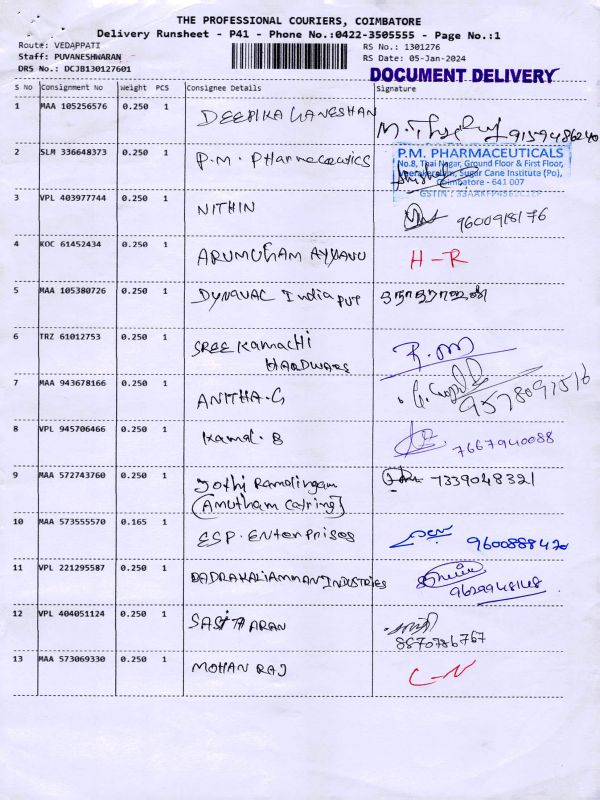 THE PROFESSIONAL COURIERS, COIMBATORE
Delivery Runsheet - P41 - Phone No.:0422-3505555 - Page No.:1
Route: VEDAPPATI
Staff: PUVANESHWARAN
DRS No.: DCJB130127601
RS No.: 1301276
RS Date: 05-Jan-2024
DOCUMENT DELIVERY
S No Consignment No Weight PCS Consignee Details Signature
1 MAA 105256576 0.250 1 DEEPIKA GANESHAN 9159486240
2 SLM 336648373 0.250 1 P.M. Pharmaceutics
P.M. PHARMACEUTICALS
No.8, Thai Nagar, Ground Floor & First Floor,
Veerakeralam, Sugar Cane Institute (Po),
Coimbatore - 641 007
3 VPL 403977744 0.250 1 NITHIN 9600918176
4 KOC 61452434 0.250 1 ARUMUGAM AYYAVU H-R
5 MAA 105380726 0.250 1 DYNAVAC India PVT
6 TRZ 61012753 0.250 1 SREE Kamachi
HARDWARS
7 MAA 943678166 0.250 1 ANITHA.G 9578097516
8 VPL 945706466 0.250 1 Kamal. B 7667940088
9 MAA 572743760 0.250 1 Jothi Ramalingam 7339048321
(Amutham Catring)
10 MAA 573555570 0.165 1 ESP. Enterprises 9600888420
11 VPL 221295587 0.250 1 BADRAKALIAMMAN INDUSTRIES
9629948148
12 VPL 404051124 0.250 1 SASITHARAN
8870786767
13 MAA 573069330 0.250 1 MOHAN RAJ C-N